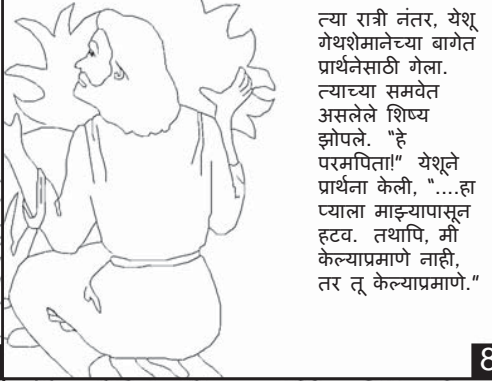 त्या रात्री नंतर, येशू
गेथशेमानेच्या बागेत
प्रार्थनेसाठी गेला.
त्याच्या समवेत
असलेले शिष्य
झोपले. "हे
परमपिता!" येशूने
प्रार्थना केली, "....हा
प्याला माझ्यापासून
हटव. तथापि, मी
केल्याप्रमाणे नाही,
तर तू केल्याप्रमाणे."
8